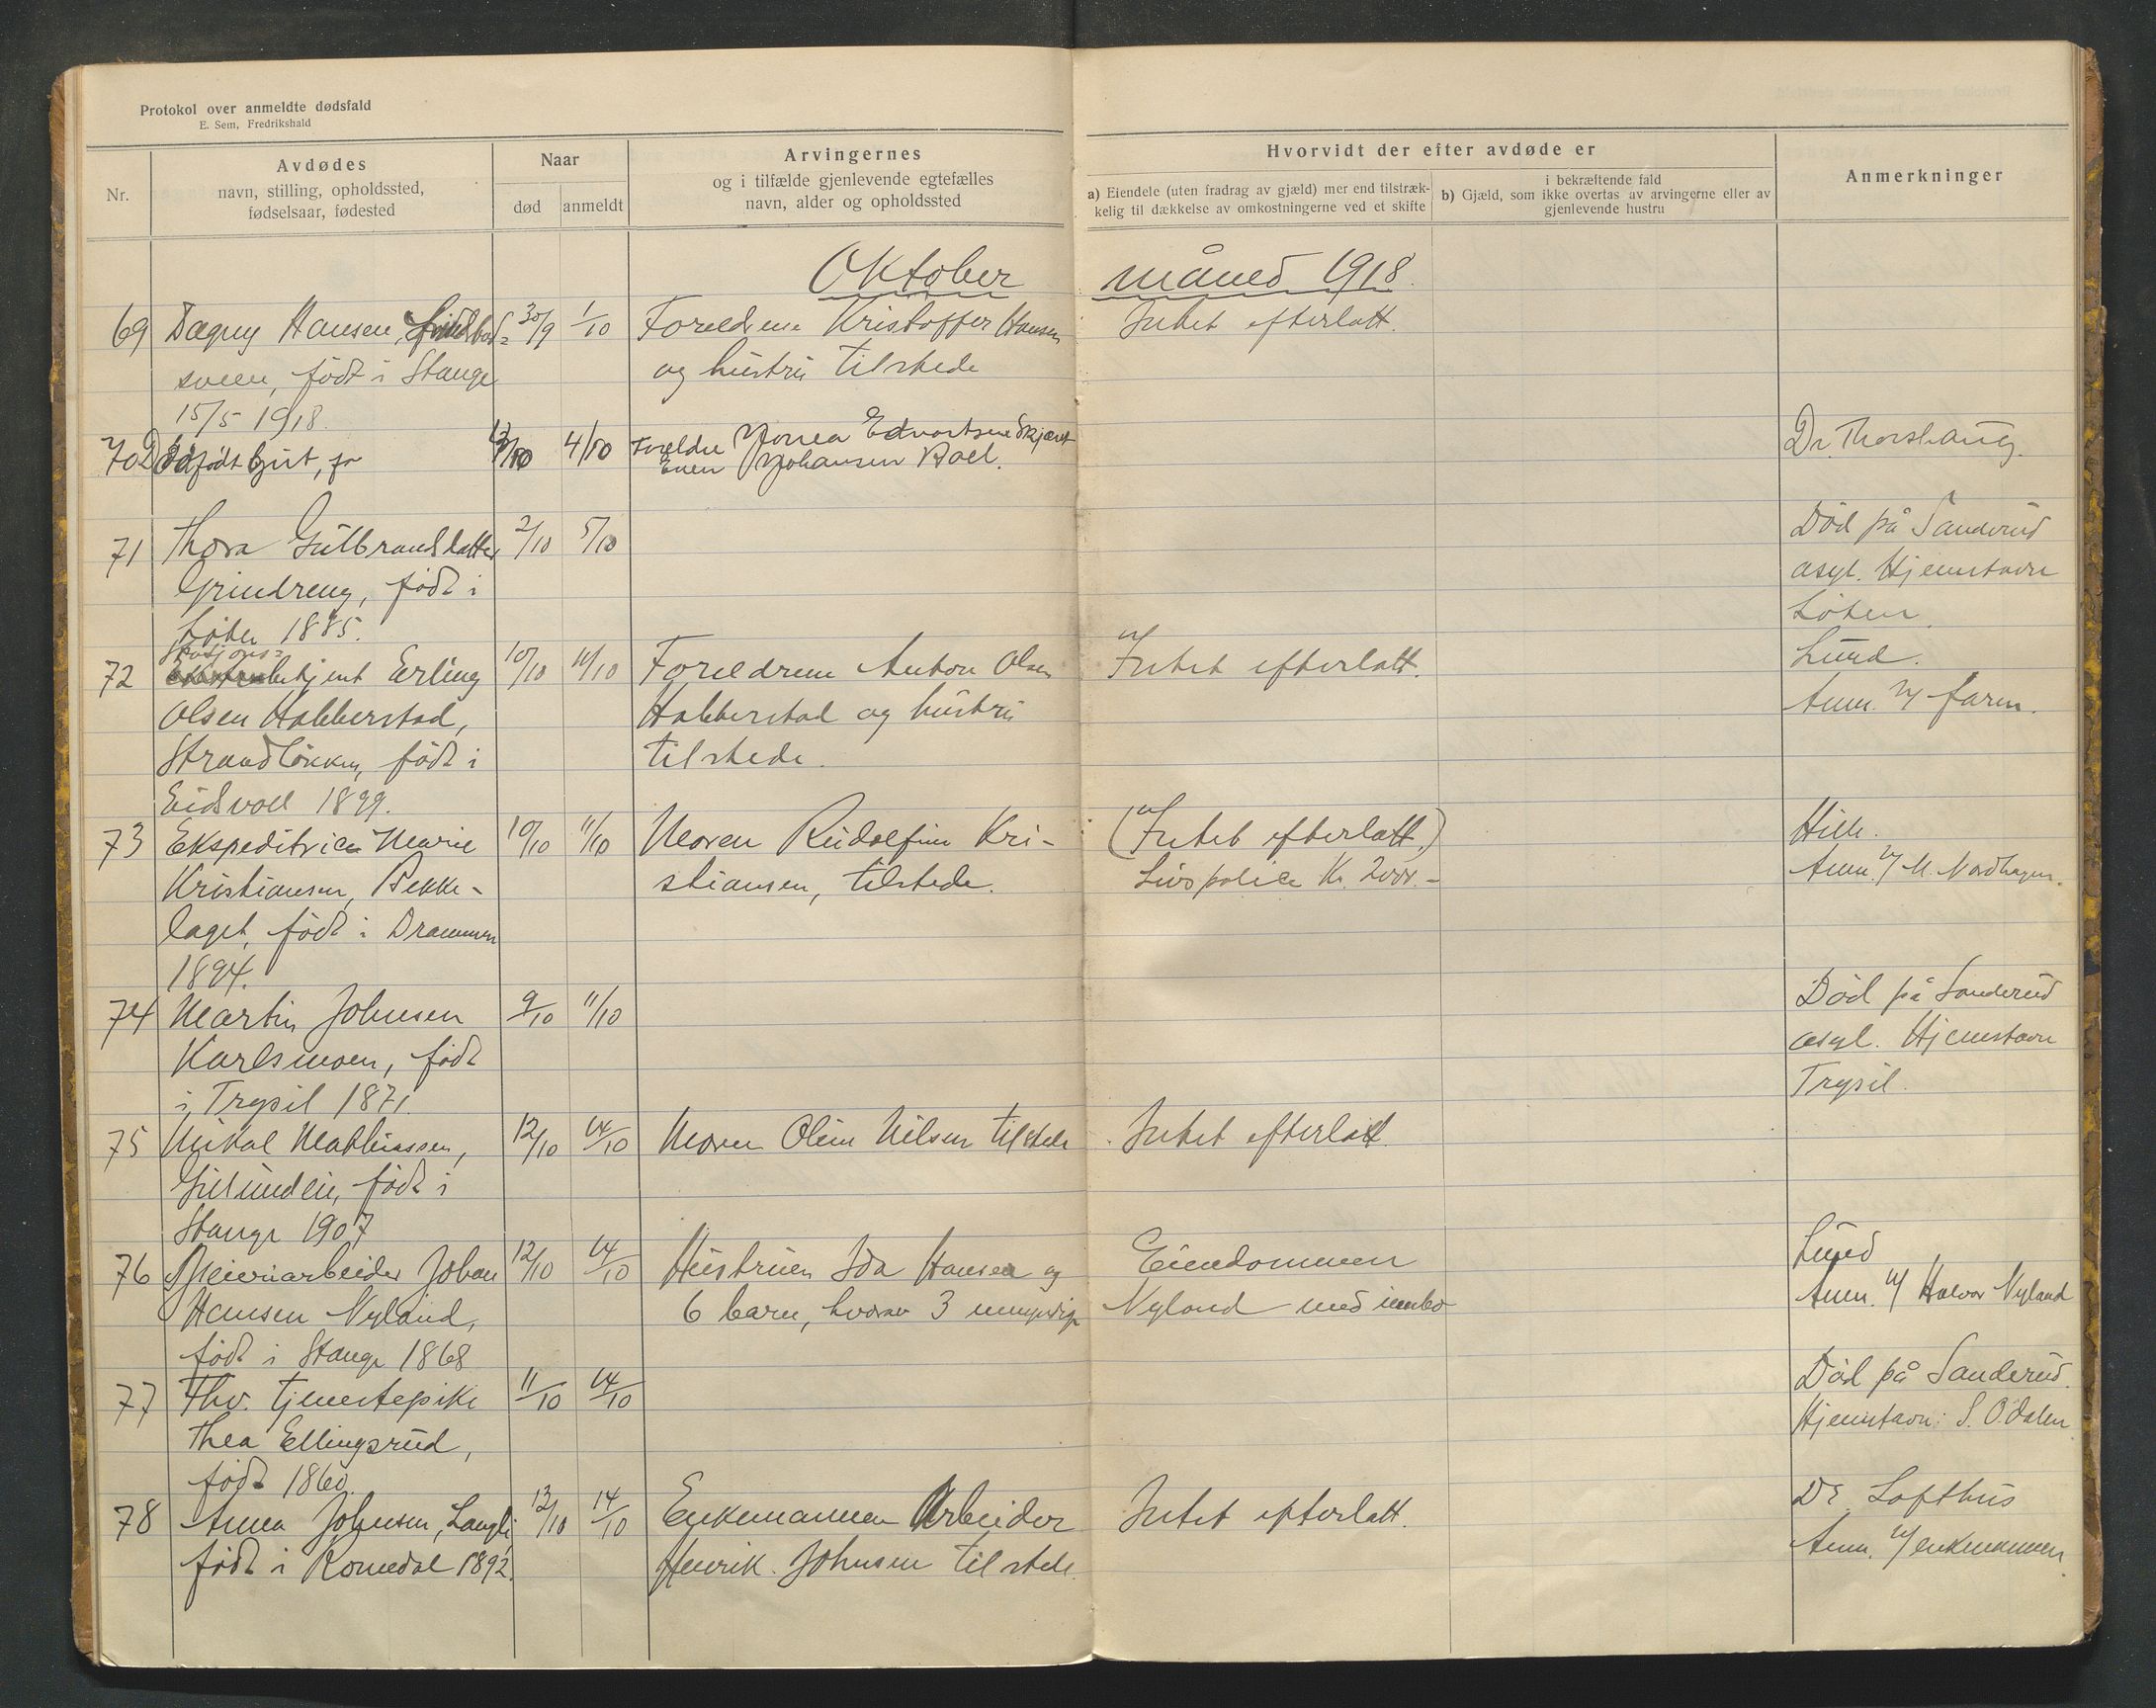 Protokol over anmeldte dødsfald
E. Sem, Fredrikshald
Nr.
Avdødes
navn, stilling, opholdssted,
fødselsaar, fødested
Naar
død
anmeldt
Arvingernes
og i tilfælde gjenlevende egtefælles
navn, alder og opholdssted
Hvorvidt der efter avdøde er
a) Eiendele (uten fradrag av gjæld) mer end tilstræk-
kelig til dækkelse av omkostningerne ved et skifte
i bekræftende fald
b) Gjæld, som ikke overtas av arvingerne eller av
gjenlevende hustru
Anmerkninger
Oktober måned 1918.
69 Dagny Hansen, 30/9 1/10 Foreldrene Kristoffer Hansen Intet efterlatt.
sveen, født i Stange og hustru tilstede
15/5 1918.
70 Dødfødt gut, 4/10 Foreldre Jonea Edvartsen Skjæret Dr. Thorshaug.
Even Johansen Boel.
71 Thora Gulbrandsdatter 2/10 5/10 Død på Sanderud
Grindreng, født i asyl. Hjemstavn
Løten 1885. Løten.
Stasjons=
72 betjent Erling 10/10 11/10 Foreldrene Anton Olsen Intet efterlatt. Lund.
Olsen Habberstad, Habberstad og hustru Anm. v/ faren.
Strandløkken, født i tilstede.
Eidsvoll 1899.
73 Ekspeditrice Marie 10/10 11/10 Moren Rudolfine Kri- (Intet efterlatt.) Hille.
Kristiansen, Bekke- stiansen, tilstede. Livspolice Kr. 2000.- Anm. v/ M. Nordhagen.
laget, født i Drammen
1894.
74 Martin Johnsen 9/10 11/10 Død på Sanderud
Karlsmoen, født asyl. Hjemstavn
i Trysil 1871. Trysil.
75 Mikal Mathiassen, 12/10 14/10 Moren Oline Nilsen tilstede Intet efterlatt.
Gulundeie, født i
Stange 1907
76 Meieriarbeider Johan 12/10 14/10 Hustruen Ida Hansen og Eiendommen Lund
Hansen Nyland, 6 barn, hvorav 3 umyndige Nyland med innbo Anm. v/ Halvor Nyland
født i Stange 1868
77 Fhv. tjenestepike 11/10 14/10 Død på Sanderud.
Thea Ellingsrud, Hjemstavn: S. Odalen.
født 1860.
78 Anna Johnsen, Langli, 12/10 14/10 Enkemannen Arbeider Intet efterlatt. Dr. Lofthus
født i Romedal 1892. Henrik Johnsen tilstede. Anm. v/ enkemannen.